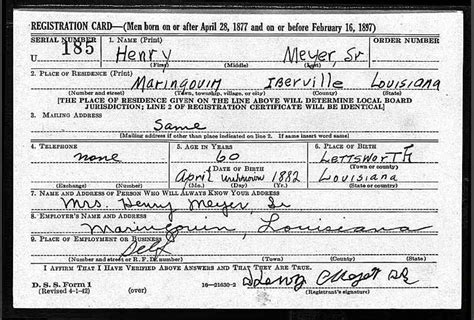 REGISTRATION CARD—(Men born on or after April 28, 1877 and on or before February 16, 1897)
SERIAL NUMBER 1. NAME (Print)
U 185 Henry Meyer Sr
(First) (Middle) (Last)
2. PLACE OF RESIDENCE (Print)
Maringouin Iberville Louisiana
(Number and street) (Town, township, village, or city) (County) (State)
[THE PLACE OF RESIDENCE GIVEN ON THE LINE ABOVE WILL DETERMINE LOCAL BOARD
JURISDICTION; LINE 2 OF REGISTRATION CERTIFICATE WILL BE IDENTICAL]
3. MAILING ADDRESS
Same
[Mailing address if other than place indicated on line 2. If same insert word same]
4. TELEPHONE 5. AGE IN YEARS 6. PLACE OF BIRTH
none 60 Lettsworth
DATE OF BIRTH (Town or county)
April unknown 1882 Louisiana
(Exchange) (Number) (Mo.) (Day) (Yr.) (State or country)
7. NAME AND ADDRESS OF PERSON WHO WILL ALWAYS KNOW YOUR ADDRESS
Mrs. Henry Meyer, Sr
8. EMPLOYER'S NAME AND ADDRESS
Maringouin, Louisiana
9. PLACE OF EMPLOYMENT OR BUSINESS
Self
(Number and street or R. F. D. number) (Town) (County) (State)
I AFFIRM THAT I HAVE VERIFIED ABOVE ANSWERS AND THAT THEY ARE TRUE.
D. S. S. Form 1
(Revised 4-1-42) (over) 16—21630-2 Henry
(Registrant's signature)